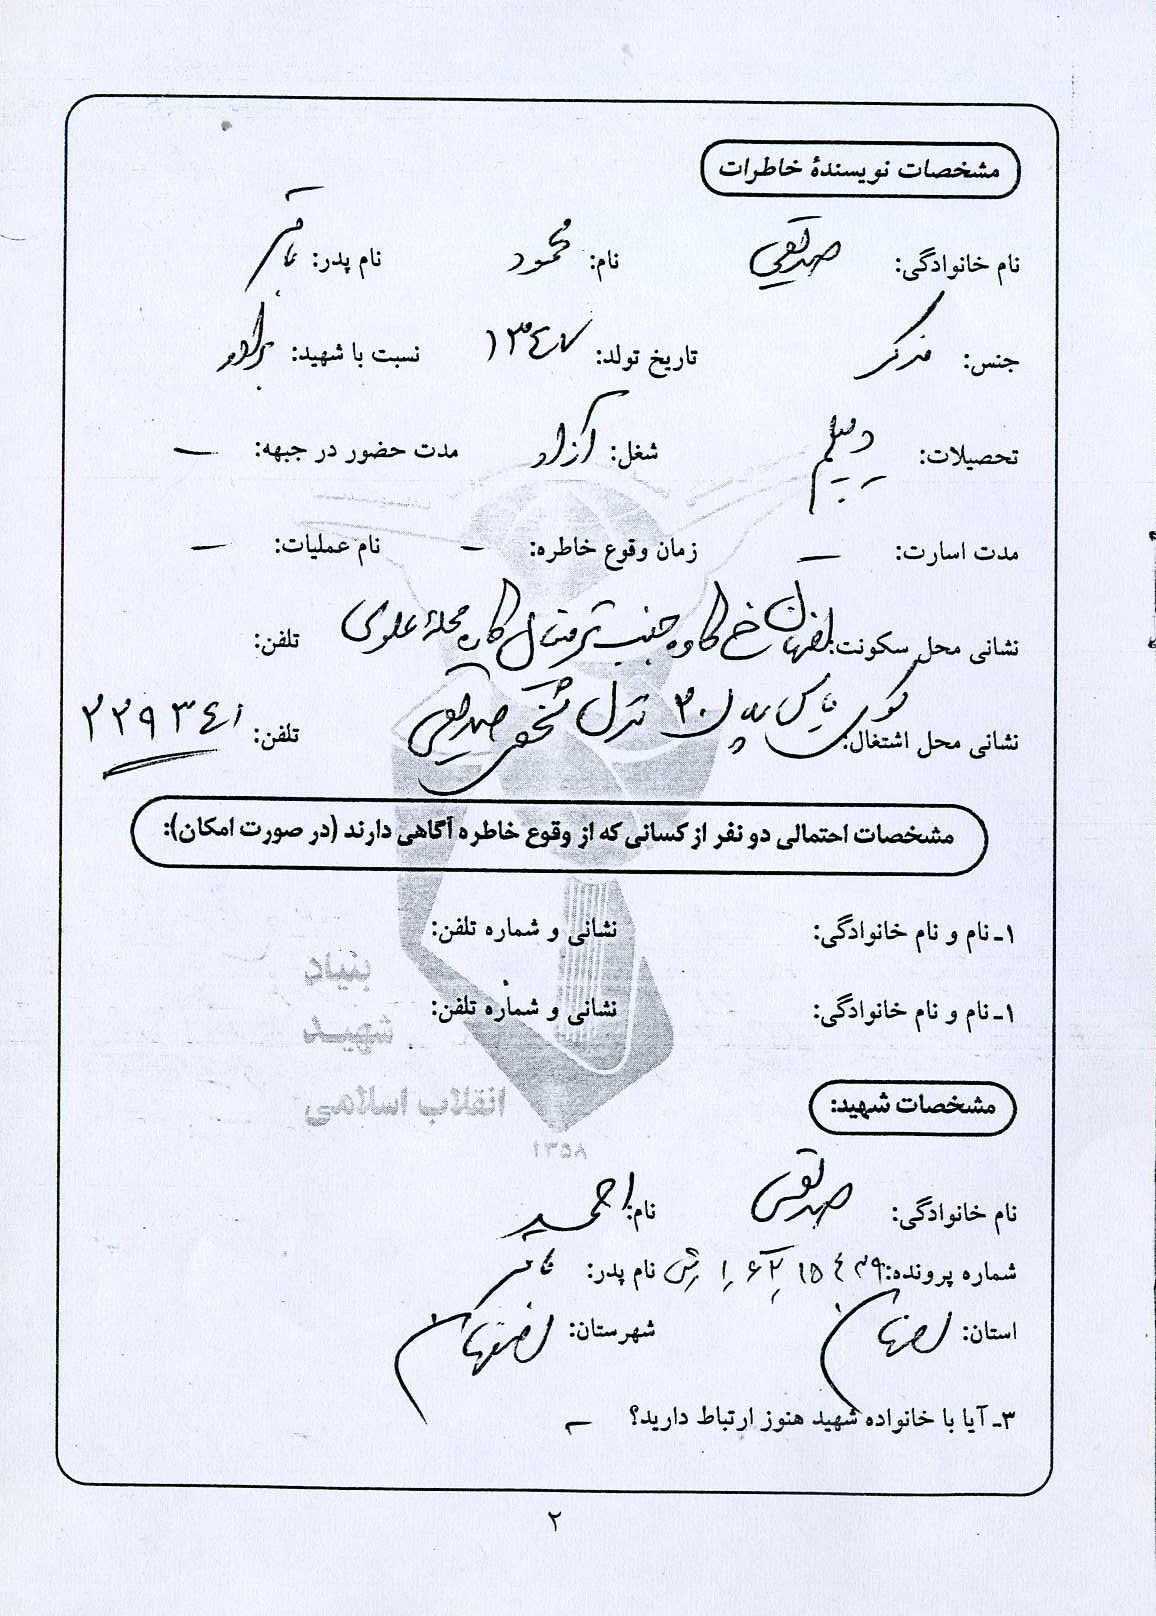 مشخصات نویسندهٔ خاطرات
نام خانوادگی: صدیقی نام: محمود نام پدر: باقر
جنس: مذکر تاریخ تولد: ۱۳۴۷ نسبت با شهید: برادر
تحصیلات: دیپلم شغل: آزاد مدت حضور در جبهه: –
مدت اسارت: – زمان وقوع خاطره: – نام عملیات: –
نشانی محل سکونت: اصفهان خ کاوه جنب ترمینال کاوه محله علوی تلفن:
نشانی محل اشتغال: کوی یاس پلاک ۳۰ منزل شخصی صدیقی تلفن:
مشخصات احتمالی دو نفر از کسانی که از وقوع خاطره آگاهی دارند (در صورت امکان):
۱ـ نام و نام خانوادگی: نشانی و شماره تلفن:
۱ـ نام و نام خانوادگی: نشانی و شماره تلفن:
بنیاد
شهید
انقلاب اسلامی
۱۳۵۸
مشخصات شهید:
نام خانوادگی: صدیقی نام: احمد
شماره پرونده: نام پدر: باقر
استان: اصفهان شهرستان: اصفهان
۳ـ آیا با خانواده شهید هنوز ارتباط دارید؟ –
۲